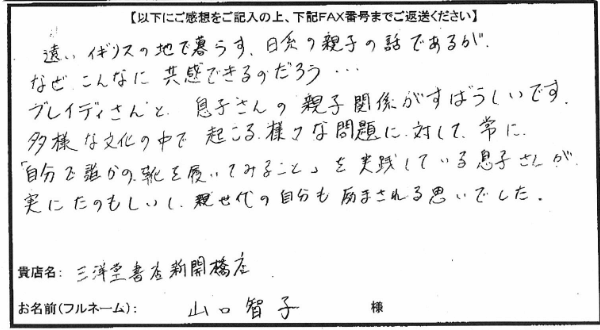 【以下にご感想をご記入の上、下記FAX番号までご返送ください】
遠いイギリスの地で暮らす、日系の親子の話であるが、
なぜこんなに共感できるのだろう…
ブレイディさんと、息子さんの親子関係がすばらしいです。
多様な文化の中で起こる様々な問題に対して、常に、
「自分で誰かの靴を履いてみること」を実践している息子さんが
実にたのもしいし、親世代の自分も励まされる思いでした。
貴店名: 三洋堂書店新開橋店
お名前(フルネーム): 山口智子 様